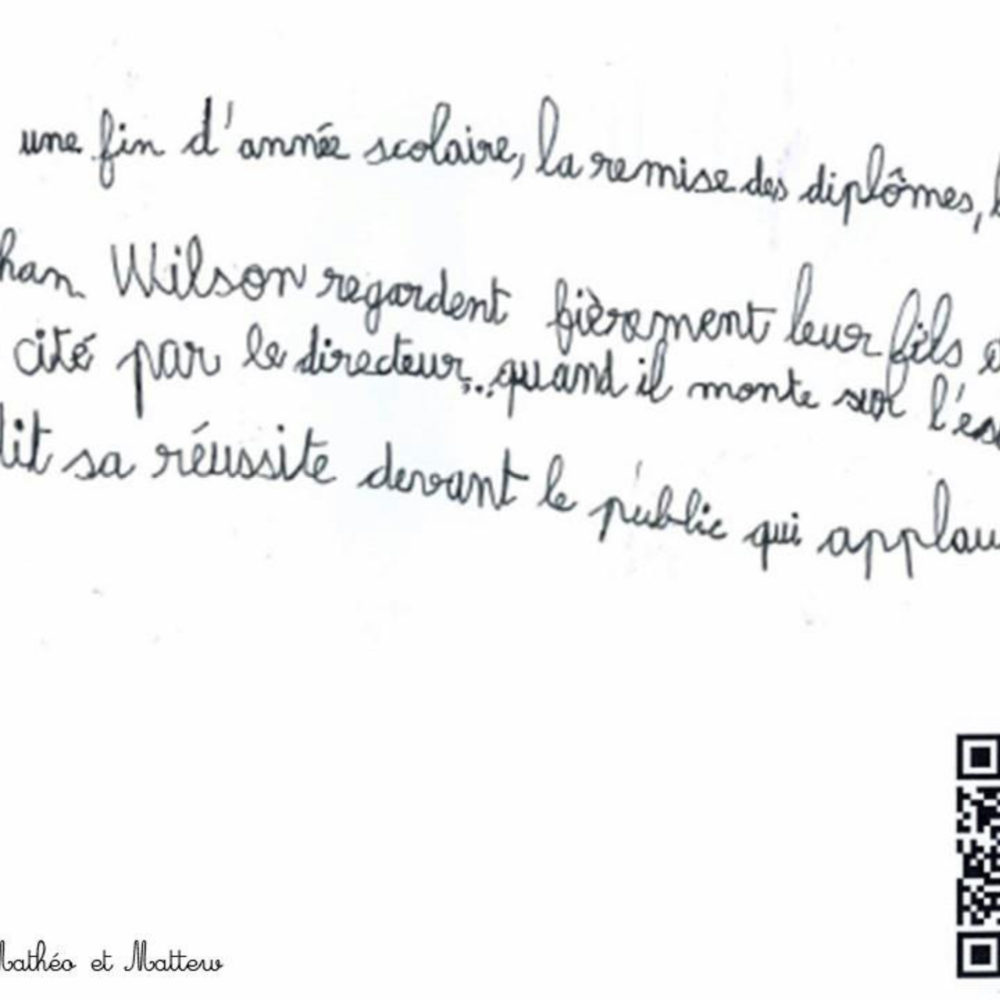 une fin d'année scolaire, la remise des diplômes,
han Wilson regardent fièrement leur fils
cité par le directeur... quand il monte sur l'es
dit sa réussite devant le public qui applau
Mathéo et Mattew